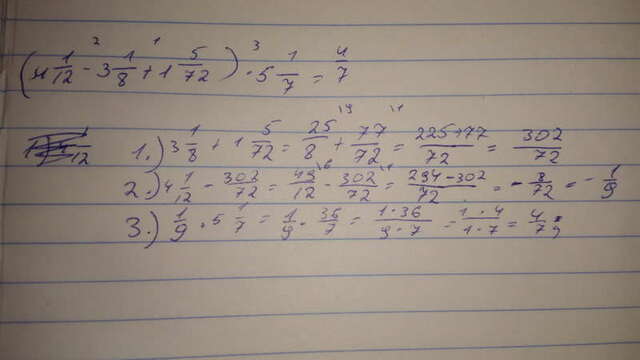 (4 1/12 - 3 1/8 + 1 5/72) · 5 1/7 = 4/7
2 1 3
1.) 3 1/8 + 1 5/72 = 25/8 + 77/72 = 225+77/72 = 302/72
2.) 4 1/12 - 302/72 = 49/12 - 302/72 = 294-302/72 = - 8/72 = - 1/9
3.) 1/9 · 5 1/7 = 1/9 · 36/7 = 1·36/9·7 = 1·4/1·7 = 4/7;